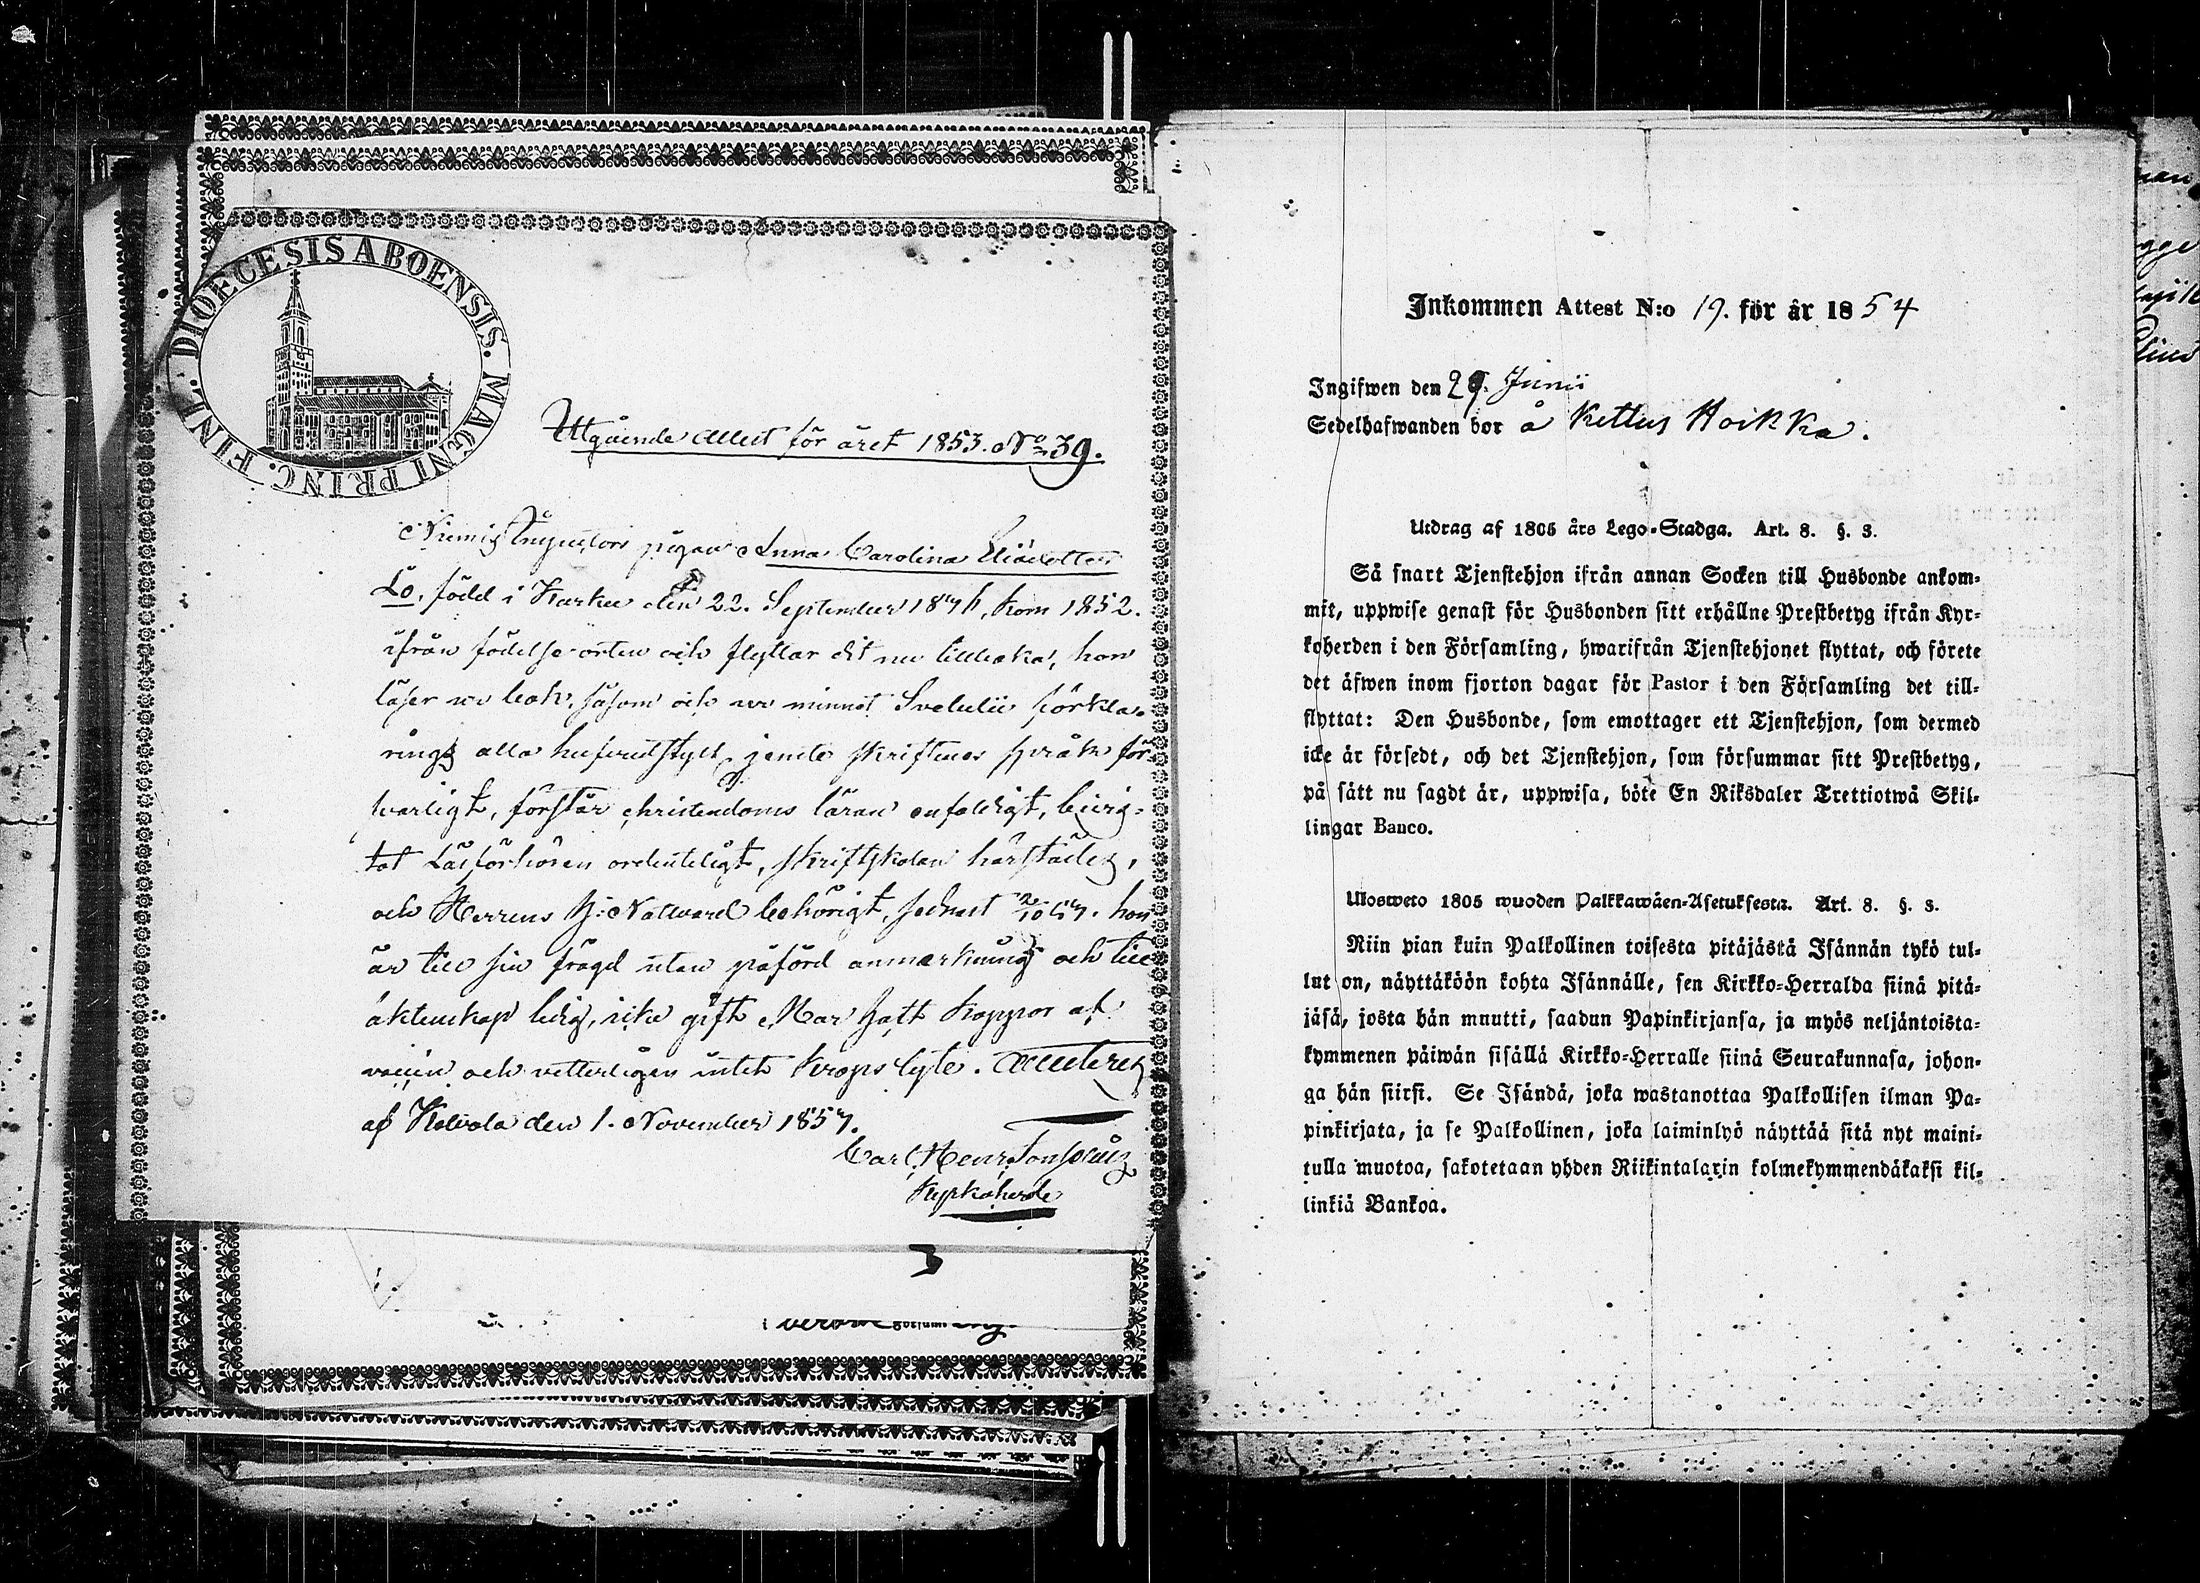 DIOECESIS ABOENSIS. MAGNI PRINC. FINL.
Utgående Attest för året 1853. No 39.
pigan Anna Carolina
Lö, född i Karku den 22. September, kom 1852.
ifrån födelse orten och flyttar dit nu tillbaka, hon
läser av bok, såsom och utur minnet Svebelii förkla-
rings alla hufvudstyk jemte skriftenes språk för-
svarligt, förstår christendoms läran enfaldigt, bevis-
tat Läsförhören ordenteligt, skriftskolan härstädes,
och Herrens H: Nattvard behörigt, sednast hon
är till sin frägd utan påförd anmärkning och till
äktenskap ledig, icke gift. Har haft koppor af
och vetterligen intet krops lyte. Attesteras
af Kalvola den 1. November 1853.
Carl Henr.
Kyrkoherde
3
Inkommen Attest N:o 19. för år 1854
Ingifwen den 29. Junii
Sedelhafwanden bor å Kettus Hoikka.
Utdrag af 1805 års Lego-Stadga. Art. 8. §. 3.
Så snart Tjenstehjon ifrån annan Socken till Husbonde ankom-
mit, uppwise genast för Husbonden sitt erhållne Prestbetyg ifrån Kyr-
koherden i den Församling, hwarifrån Tjenstehjonet flyttat, och förete
det äfwen inom fjorton dagar för Pastor i den Församling det till-
flyttat: Den Husbonde, som emottager ett Tjenstehjon, som dermed
icke är försedt, och det Tjenstehjon, som försummar sitt Prestbetyg,
på sätt nu sagdt är, uppwisa, böte En Riksdaler Trettiotwå Skil-
lingar Banco.
Ulosweto 1805 wuoden Palkkawäen-Asetuksesta. Art. 8. §. 3.
Niin pian kuin Palkollinen toisesta pitäjästä Isännän tykö tul-
lut on, näyttäköön kohta Isännälle, sen Kirkko-Herralda siinä pitä-
jäsä, josta hän mnutti, saadun Papinkirjansa, ja myös neljäntoista-
kymmenen päiwän sisällä Kirkko-Herralle siinä Seurakunnasa, johon-
ga hän siirsi. Se Isändä, joka wastanottaa Palkollisen ilman Pa-
pinkirjata, ja se Palkollinen, joka laiminlyö näyttää sitä nyt maini-
tulla muotoa, sakotetaan yhden Riikintalarin kolmekymmendäkaksi kil-
linkiä Bankoa.